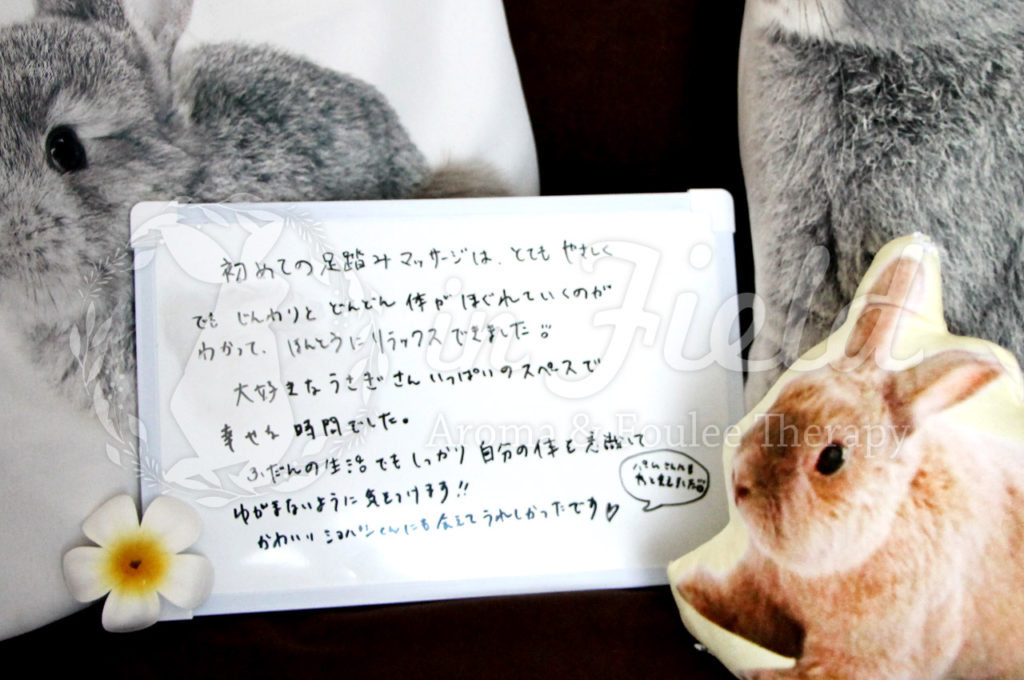 初めての足踏みマッサージは、とても やさしく
でも じんわりと どんどん 体が ほぐれていくのが
わかって、ほんとうにリラックスできました
大好きなうさぎさんいっぱいのスペースで
幸せな時間でした。
ふだんの生活でもしっかり 自分の体を意識して
ゆがまないように気をつけます!!
かわいい ショパンくんにも会えてうれしかったです♡
in Field
Aroma & Foulee Therapy